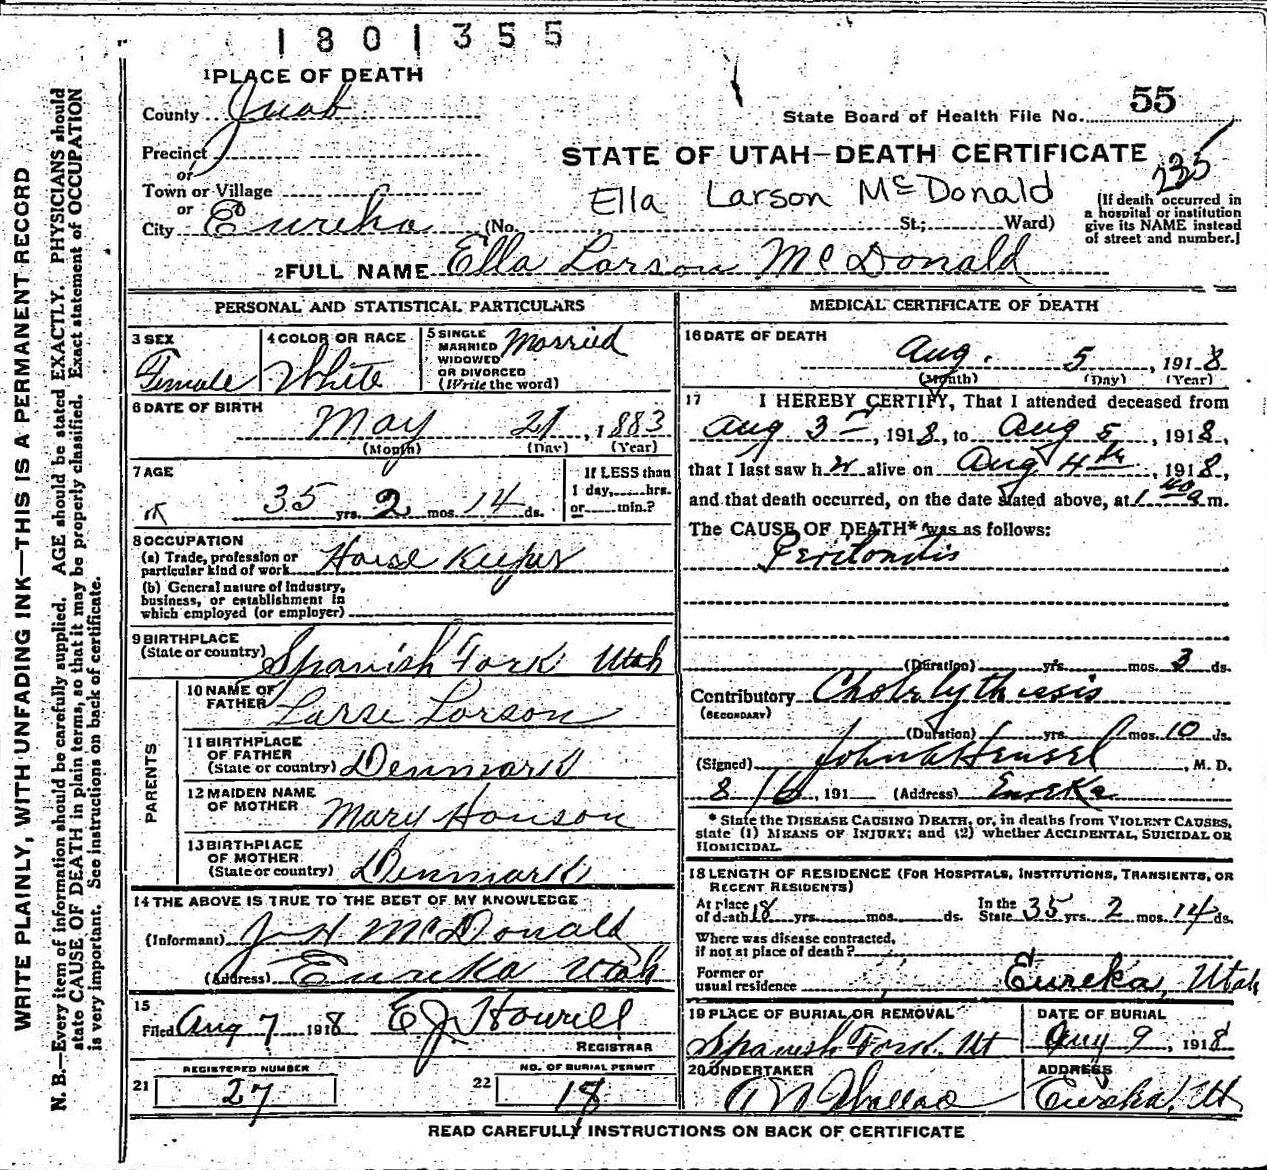 1801355
1 PLACE OF DEATH
County Juab
State Board of Health File No. 55
Precinct
or
STATE OF UTAH—DEATH CERTIFICATE
235
Town or Village
or
Ella Larson McDonald
City Eureka (No. St.; Ward)
(If death occurred in
a hospital or institution
give its NAME instead
of street and number.)
2 FULL NAME Ella Larson McDonald
PERSONAL AND STATISTICAL PARTICULARS
3 SEX
Female
4 COLOR OR RACE
White
5 SINGLE
MARRIED
WIDOWED
OR DIVORCED
(Write the word)
Married
6 DATE OF BIRTH
May 21, 1883
(Month) (Day) (Year)
7 AGE
35 yrs. 2 mos. 14 ds.
If LESS than
1 day, hrs.
or min.?
8 OCCUPATION
(a) Trade, profession or
particular kind of work House Keeper
(b) General nature of industry,
business, or establishment in
which employed (or employer)
9 BIRTHPLACE
(State or country) Spanish Fork Utah
PARENTS
10 NAME OF
FATHER Larse Larson
11 BIRTHPLACE
OF FATHER
(State or country) Denmark
12 MAIDEN NAME
OF MOTHER Mary Hanson
13 BIRTHPLACE
OF MOTHER
(State or country) Denmark
14 THE ABOVE IS TRUE TO THE BEST OF MY KNOWLEDGE
(Informant) J H McDonald
(Address) Eureka Utah
15
Filed Aug 7 1918 E J Howell
REGISTRAR
21 REGISTERED NUMBER
27
22 NO. OF BURIAL PERMIT
18
MEDICAL CERTIFICATE OF DEATH
16 DATE OF DEATH
Aug. 5, 1918
(Month) (Day) (Year)
17 I HEREBY CERTIFY, That I attended deceased from
Aug 3rd, 1918, to Aug 5, 1918,
that I last saw her alive on Aug 4th, 1918,
and that death occurred, on the date stated above, at 1 a m.
The CAUSE OF DEATH* was as follows:
Peritonitis
(Duration) yrs. mos. 3 ds.
Contributory
(SECONDARY)
(Duration) yrs. mos. 10 ds.
(Signed) John Hensel, M. D.
8/6, 191 (Address) Eureka
* State the DISEASE CAUSING DEATH, or, in deaths from VIOLENT CAUSES,
state (1) MEANS OF INJURY; and (2) whether ACCIDENTAL, SUICIDAL OR
HOMICIDAL.
18 LENGTH OF RESIDENCE (FOR HOSPITALS, INSTITUTIONS, TRANSIENTS, OR
RECENT RESIDENTS)
At place
of death 18 yrs. mos. ds.
In the
State 35 yrs. 2 mos. 14 ds.
Where was disease contracted,
if not at place of death?
Former or
usual residence Eureka, Utah
19 PLACE OF BURIAL OR REMOVAL
Spanish Fork. Ut
DATE OF BURIAL
Aug 9, 1918
20 UNDERTAKER
Wallace
ADDRESS
Eureka. Ut
READ CAREFULLY INSTRUCTIONS ON BACK OF CERTIFICATE
WRITE PLAINLY, WITH UNFADING INK—THIS IS A PERMANENT RECORD
N. B.—Every item of information should be carefully supplied. AGE should be stated EXACTLY. PHYSICIANS should
state CAUSE OF DEATH in plain terms, so that it may be properly classified. Exact statement of OCCUPATION
is very important. See instructions on back of certificate.